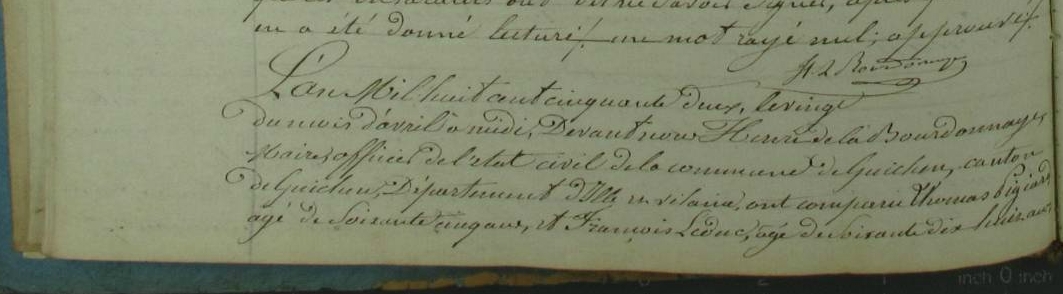 ont dit ne savoir signer, après
en a été donné lecture/. un mot rayé nul; approuvé/.
H. L Bourdonnaye
L'an Mil huit cent cinquante deux, le vingt
du mois d'avril à midi, Devant nous Henri de la Bourdonnaye,
Maire, officier de l'état civil de la commune de Guichen, canton
de Guichen, Département d'Ille en vilaine, ont comparu Thomas
agé de Soixante cinq ans, et François Leduc, agé de soixante dix huit ans
inch 0 inch